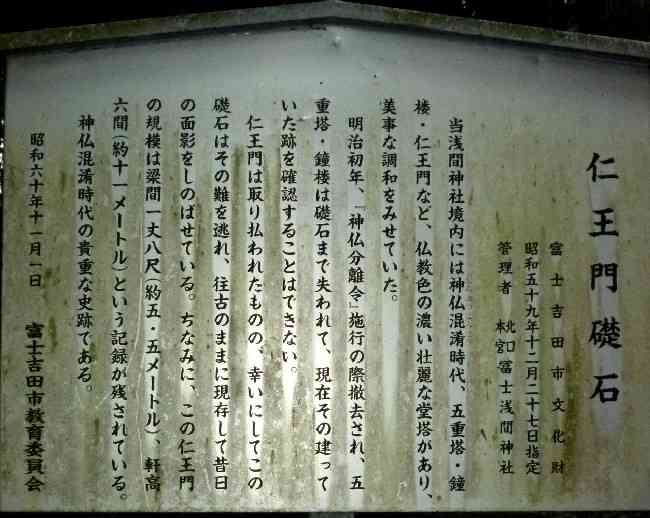 仁王門礎石
富士吉田市文化財
昭和五十九年十二月二十七日指定
管理者　北口本宮冨士浅間神社
当浅間神社境内には神仏混淆時代、五重塔・鐘
楼・仁王門など、仏教色の濃い壮麗な堂塔があり、
美事な調和をみせていた。
明治初年、「神仏分離令」施行の際撤去され、五
重塔・鐘楼は礎石まで失われて、現在その建って
いた跡を確認することはできない。
仁王門は取り払われたものの、幸いにしてこの
礎石はその難を逃れ、往古のままに現存して昔日
の面影をしのばせている。ちなみに、この仁王門
の規模は梁間一丈八尺(約五・五メートル)、軒高
六間(約十一メートル)という記録が残されている。
神仏混淆時代の貴重な史跡である。
昭和六十年十一月一日
富士吉田市教育委員会